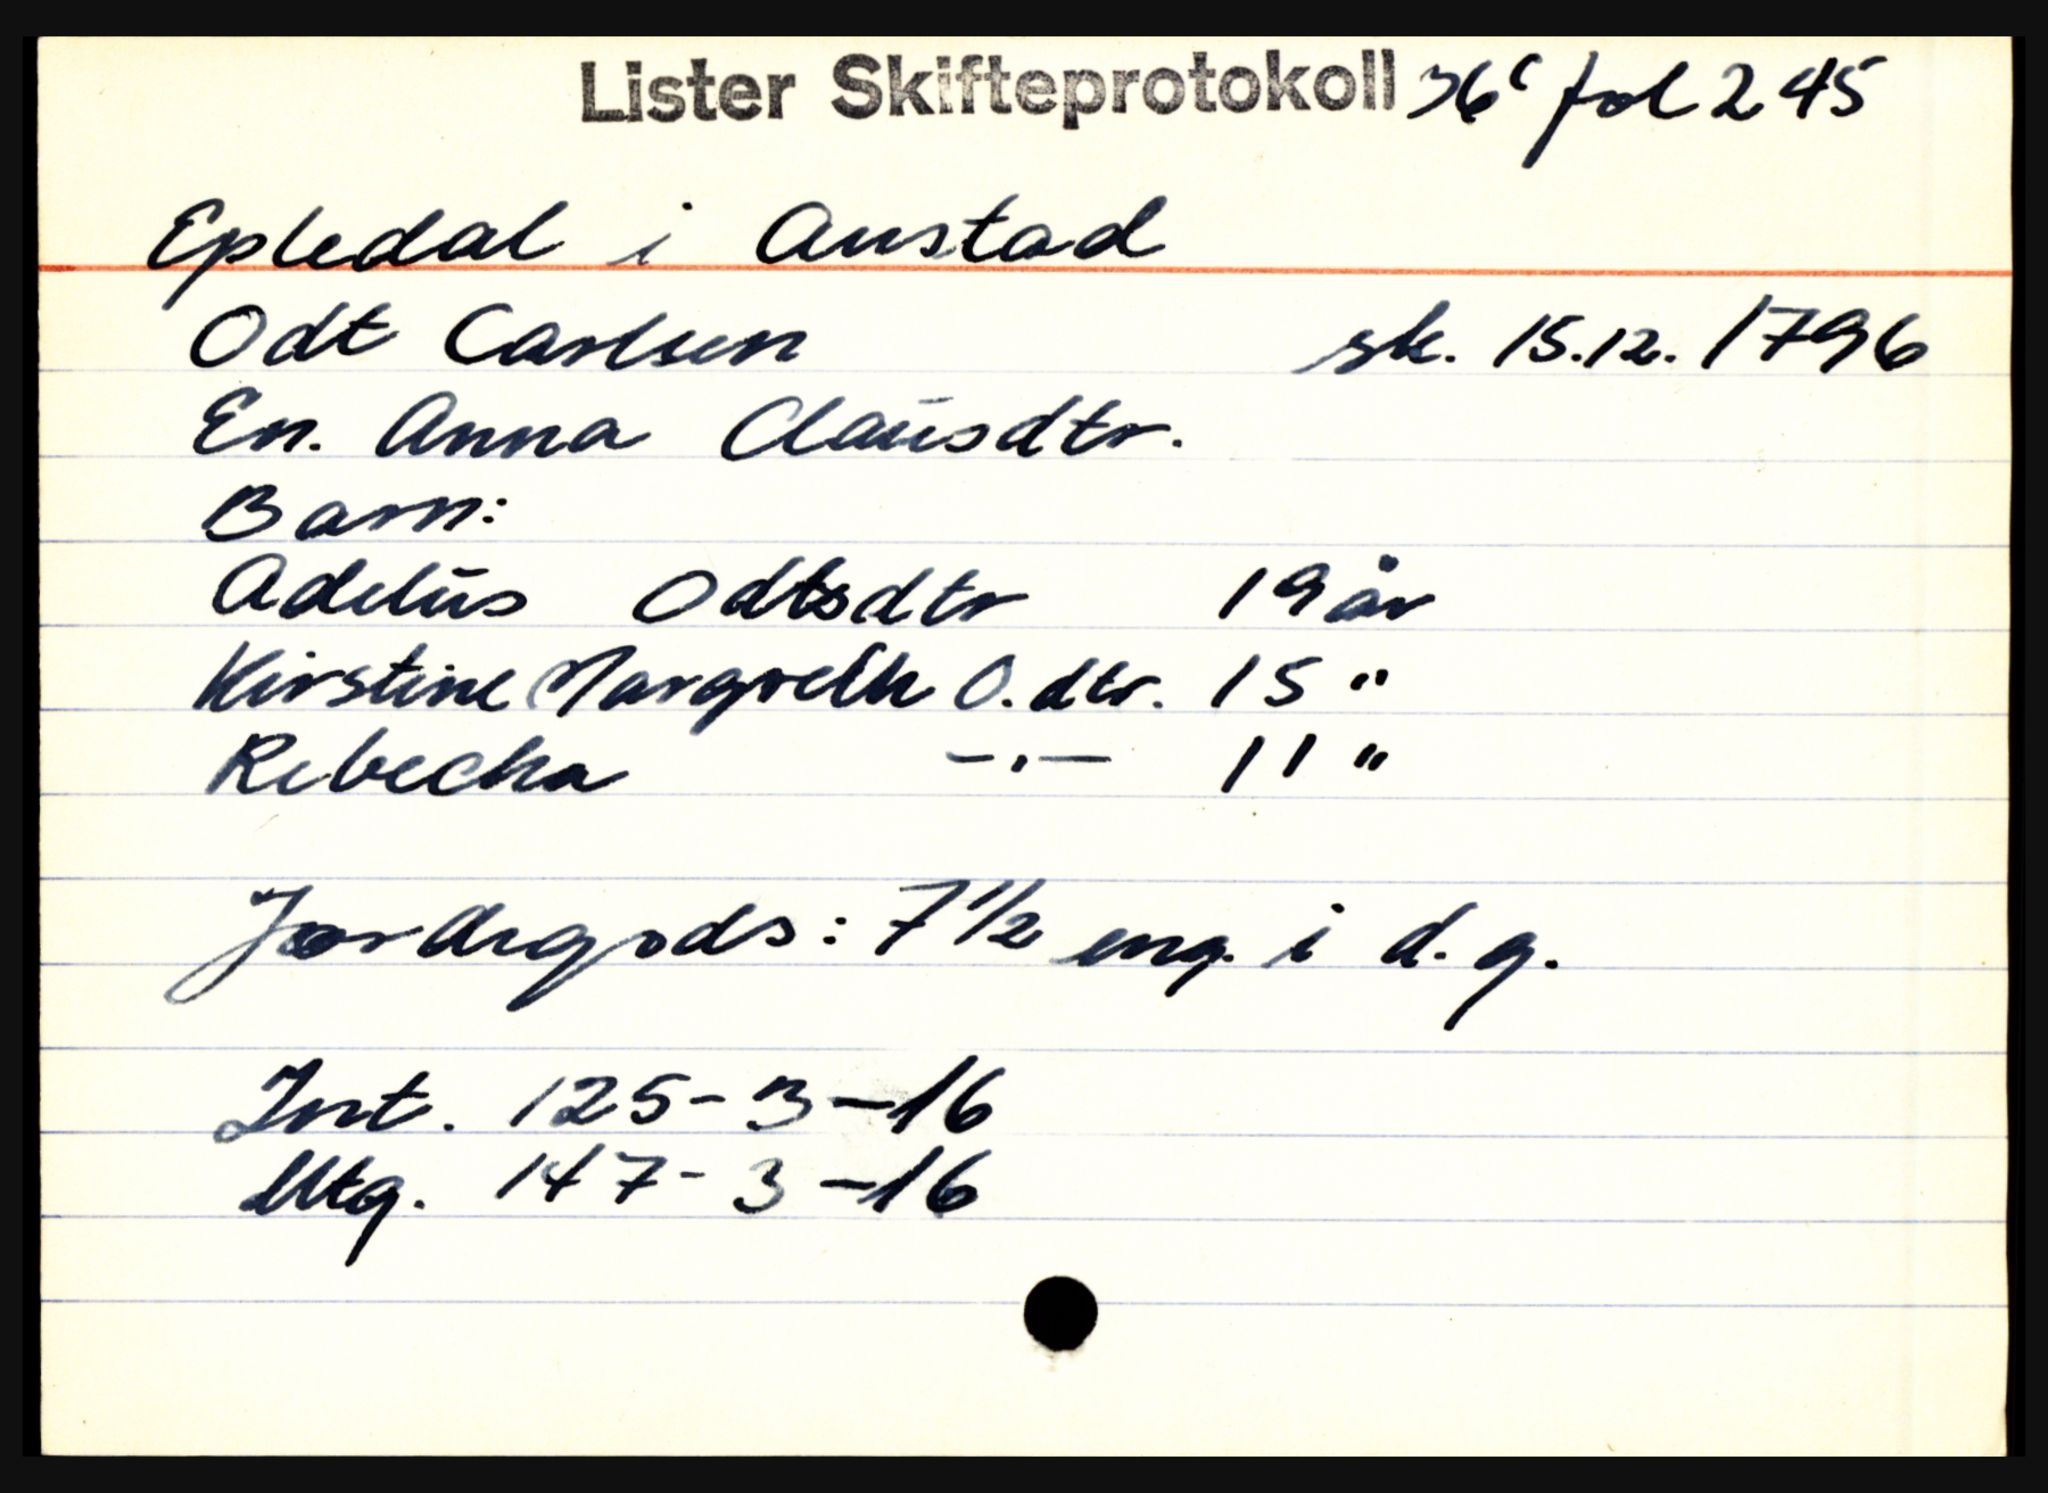 Lister Skifteprotokoll 36c fol 245
Epledal i Austad
Odt Carlsen sk. 15.12. 1796
En. Anna Claūsdtr.
Barn:
Adelūs Odtsdtr 19 år
Kirstine Margreth O.dtr. 15 "
Rebecha -"- 11 "
Jordegods: 7 1/2 eng. i d.g.
Int. 125-3-16
Utg. 147-3-16